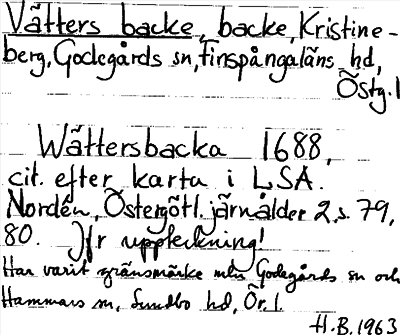 Vätters backe, backe, Kristine-
berg, Godegårds sn, Finspångaläns hd,
Östg. l
Wättersbacka 1688,
cit. efter karta i LSA.
Nordén, Östergötl. järnålder 2, s. 79,
80. Jfr uppteckning!
Har varit gränsmärke mln Godegårds sn och
Hammars sn, Sundbo hd, Ör. l.
H.B. 1963